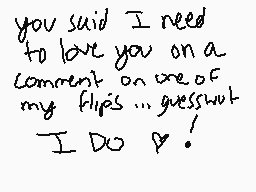 you said I need
to love you on a
comment on one of
my flips ... guesswut
I DO ♥ !